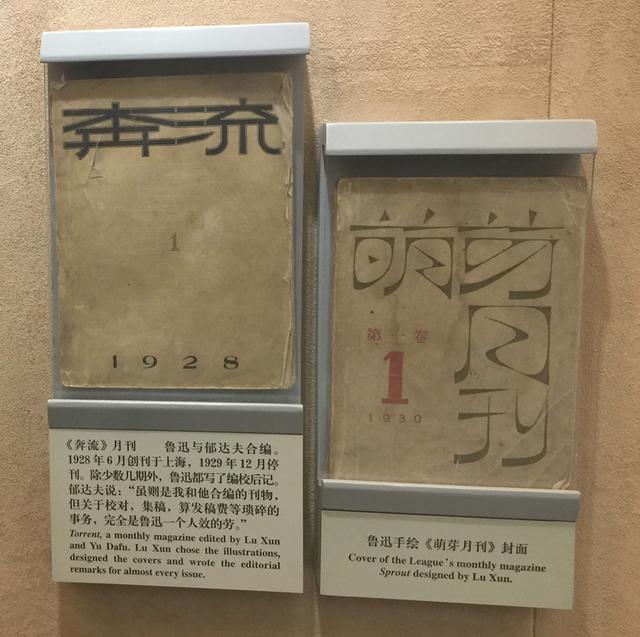 奔流
1
1928
《奔流》月刊 鲁迅与郁达夫合编。
1928年6月创刊于上海，1929年12月停
刊。除少数几期外，鲁迅都写了编校后记。
郁达夫说：“虽则是我和他合编的刊物，
但关于校对，集稿，算发稿费等琐碎的
事务，完全是鲁迅一个人效的劳。”
Torrent, a monthly magazine edited by Lu Xun
and Yu Dafu. Lu Xun chose the illustrations,
designed the covers and wrote the editorial
remarks for almost every issue.
萌芽
月刊
第一卷
1
1930
鲁迅手绘《萌芽月刊》封面
Cover of the League's monthly magazine
Sprout designed by Lu Xun.